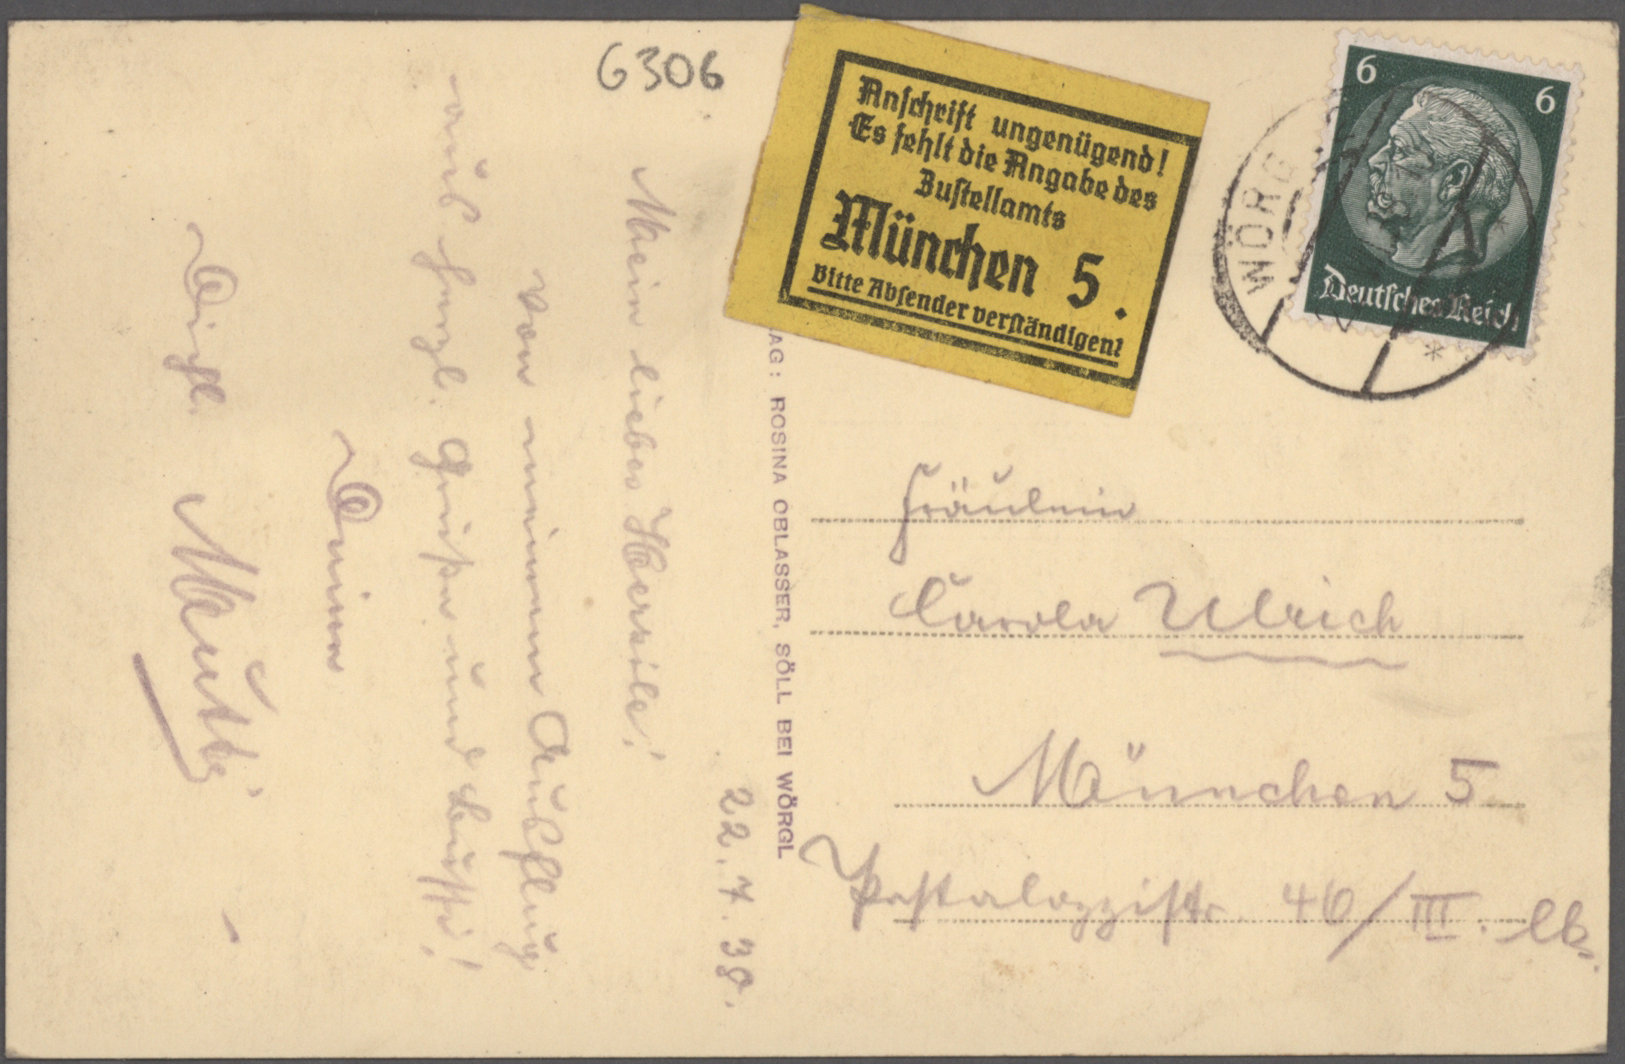 6306
Anschrift ungenügend!
Es fehlt die Angabe des
Zustellamts
München 5.
Bitte Absender verständigen!
6 6
Deutsches Reich
WÖRG
AG: ROSINA OBLASSER, SÖLL BEI WÖRGL
22. 7. 38.
Mein liebes
von meinem Ausflug
auch herzl. Grüße und Bussi!
Deine
Mutti
Fräulein
Carola Ulrich
München 5
Pestalozzistr. 46/III. lks.